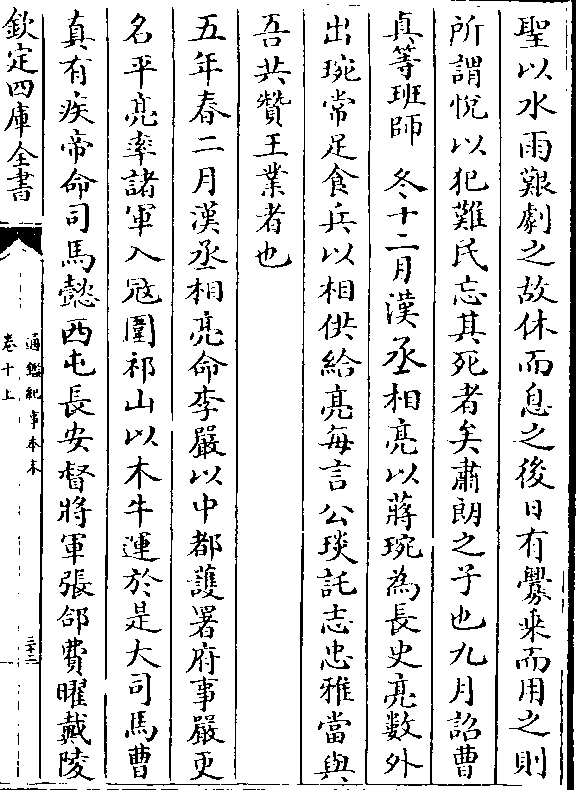 聖以水雨艱劇之故休而息之後日有釁乗而用之則
所謂悅以犯難民忘其死者矣肅朗之子也九月詔曹
真等班師　冬十二月漢丞相亮以蔣琬為長史亮數外
出琬常足食兵以相供給亮每言公琰託志忠雅當與
吾共贊王業者也
五年春二月漢丞相亮命李嚴以中都護署府事嚴更
名平亮率諸軍入寇圍祁山以木牛運於是大司馬曹
真有疾帝命司馬懿西屯長安督將軍張郃費曜戴陵
欽定四庫全書
通鑑紀事本末
卷十上
三十二